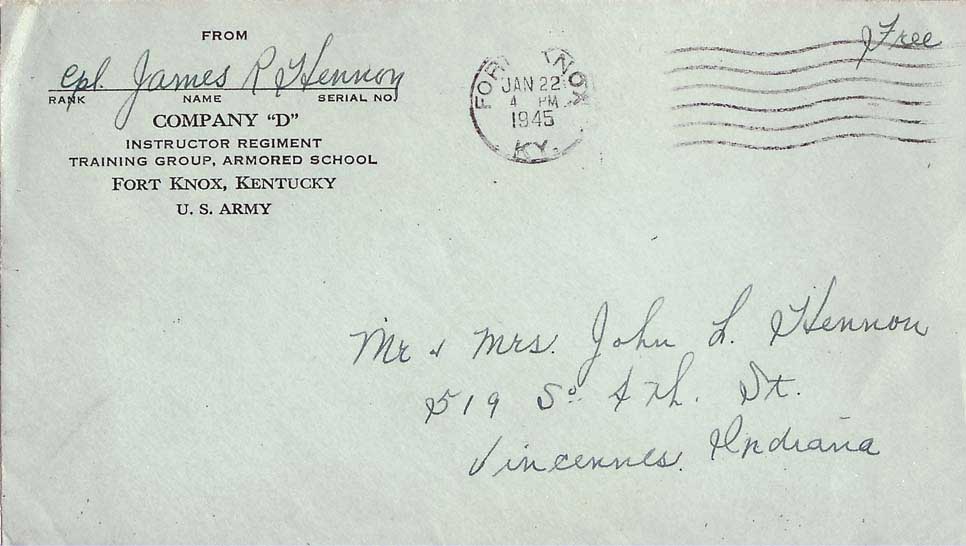 FROM
Cpl. James R Hennon
RANK NAME SERIAL NO.
COMPANY "D"
INSTRUCTOR REGIMENT
TRAINING GROUP, ARMORED SCHOOL
FORT KNOX, KENTUCKY
U. S. ARMY
FORT KNOX
JAN 22
4 PM
1945
KY.
Free
Mr & Mrs. John L. Hennon
519 So. St.
Vincennes. Indiana